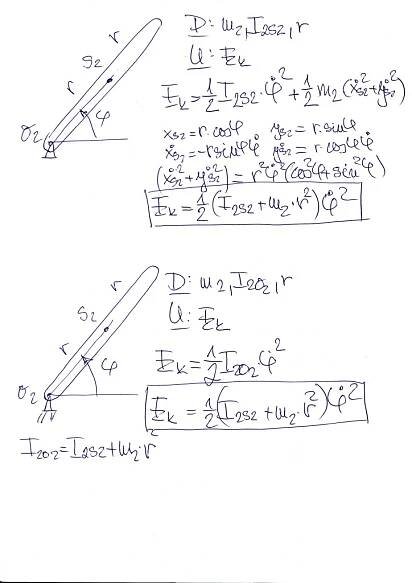 r
S2
r
φ
O2
D: m2, I2S2, r
U: Ek
Ek = 1/2 I2S2·φ̇² + 1/2 m2(ẋS2² + ẏS2²)
xS2 = r·cosφ yS2 = r·sinφ
ẋS2 = -r sinφ φ̇ ẏS2 = r·cosφ φ̇
(ẋS2² + ẏS2²) = r²φ̇²(cos²φ + sin²φ)
Ek = 1/2 (I2S2 + m2·r²) φ̇²
r
S2
r
φ
O2
D: m2, I2O2, r
U: Ek
Ek = 1/2 I2O2 φ̇²
Ek = 1/2 (I2S2 + m2·r²) φ̇²
I2O2 = I2S2 + m2·r²